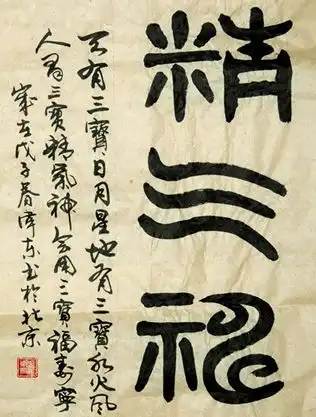 精气神
天有三寶日月星地有三寶水火風
人有三寶精氣神会用三寶福壽寧
歲在戊子春东书於北京